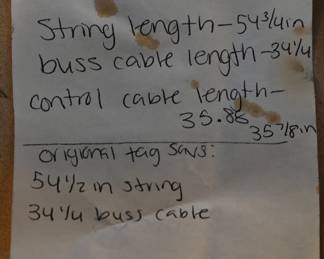 String length-54 3/4 in
buss cable length-34 1/4
control cable length-
35.88
35 7/8 in
origional tag says:
54 1/2 in string
34 1/4 buss cable